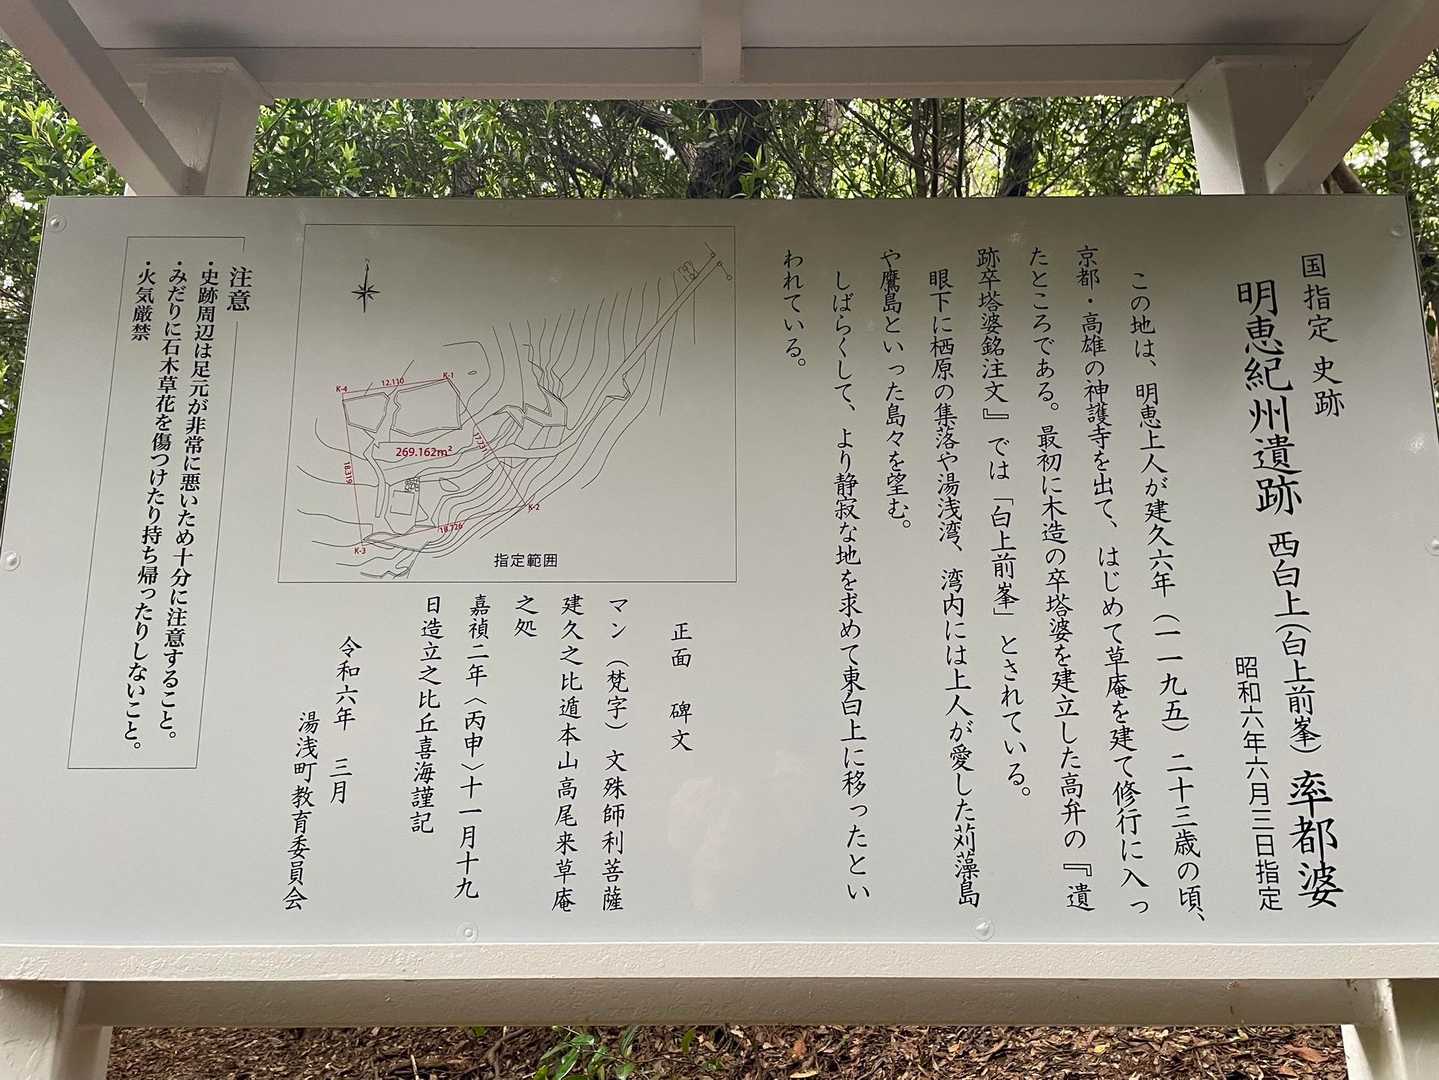 国指定 史跡
明恵紀州遺跡 西白上（白上前峯）率都婆
昭和六年六月三日指定
この地は、明恵上人が建久六年（一一九五）二十三歳の頃、
京都・高雄の神護寺を出て、はじめて草庵を建て修行に入っ
たところである。最初に木造の卒塔婆を建立した高弁の『遺
跡卒塔婆銘注文』では「白上前峯」とされている。
眼下に栖原の集落や湯浅湾、湾内には上人が愛した苅藻島
や鷹島といった島々を望む。
しばらくして、より静寂な地を求めて東白上に移ったとい
われている。
K-4
12.110
K-1
269.162m²
17.731
18.319
K-2
18.726
K-3
指定範囲
正面 碑文
マン（梵字）文殊師利菩薩
建久之比遁本山高尾来草庵
之処
嘉禎二年〈丙申〉十一月十九
日造立之比丘喜海謹記
令和六年 三月
湯浅町教育委員会
注意
・史跡周辺は足元が非常に悪いため十分に注意すること。
・みだりに石木草花を傷つけたり持ち帰ったりしないこと。
・火気厳禁